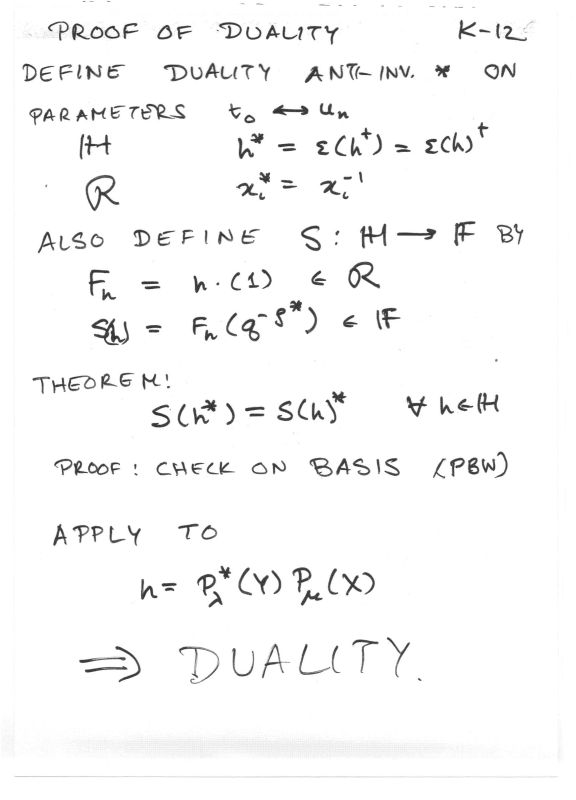 PROOF OF DUALITY K-12
DEFINE DUALITY ANTI-INV. * ON
PARAMETERS t₀ ↔ uₙ
ℍ h* = ε(h⁺) = ε(h)⁺
R xᵢ* = xᵢ⁻¹
ALSO DEFINE S: ℍ → 𝔽 BY
Fₕ = h·(1) ∈ R
S(h) = Fₕ(q^-ρ*) ∈ 𝔽
THEOREM!
S(h*) = S(h)* ∀ h∈ℍ
PROOF: CHECK ON BASIS (PBW)
APPLY TO
h = P_λ*(Y) P_μ(X)
⇒ DUALITY.